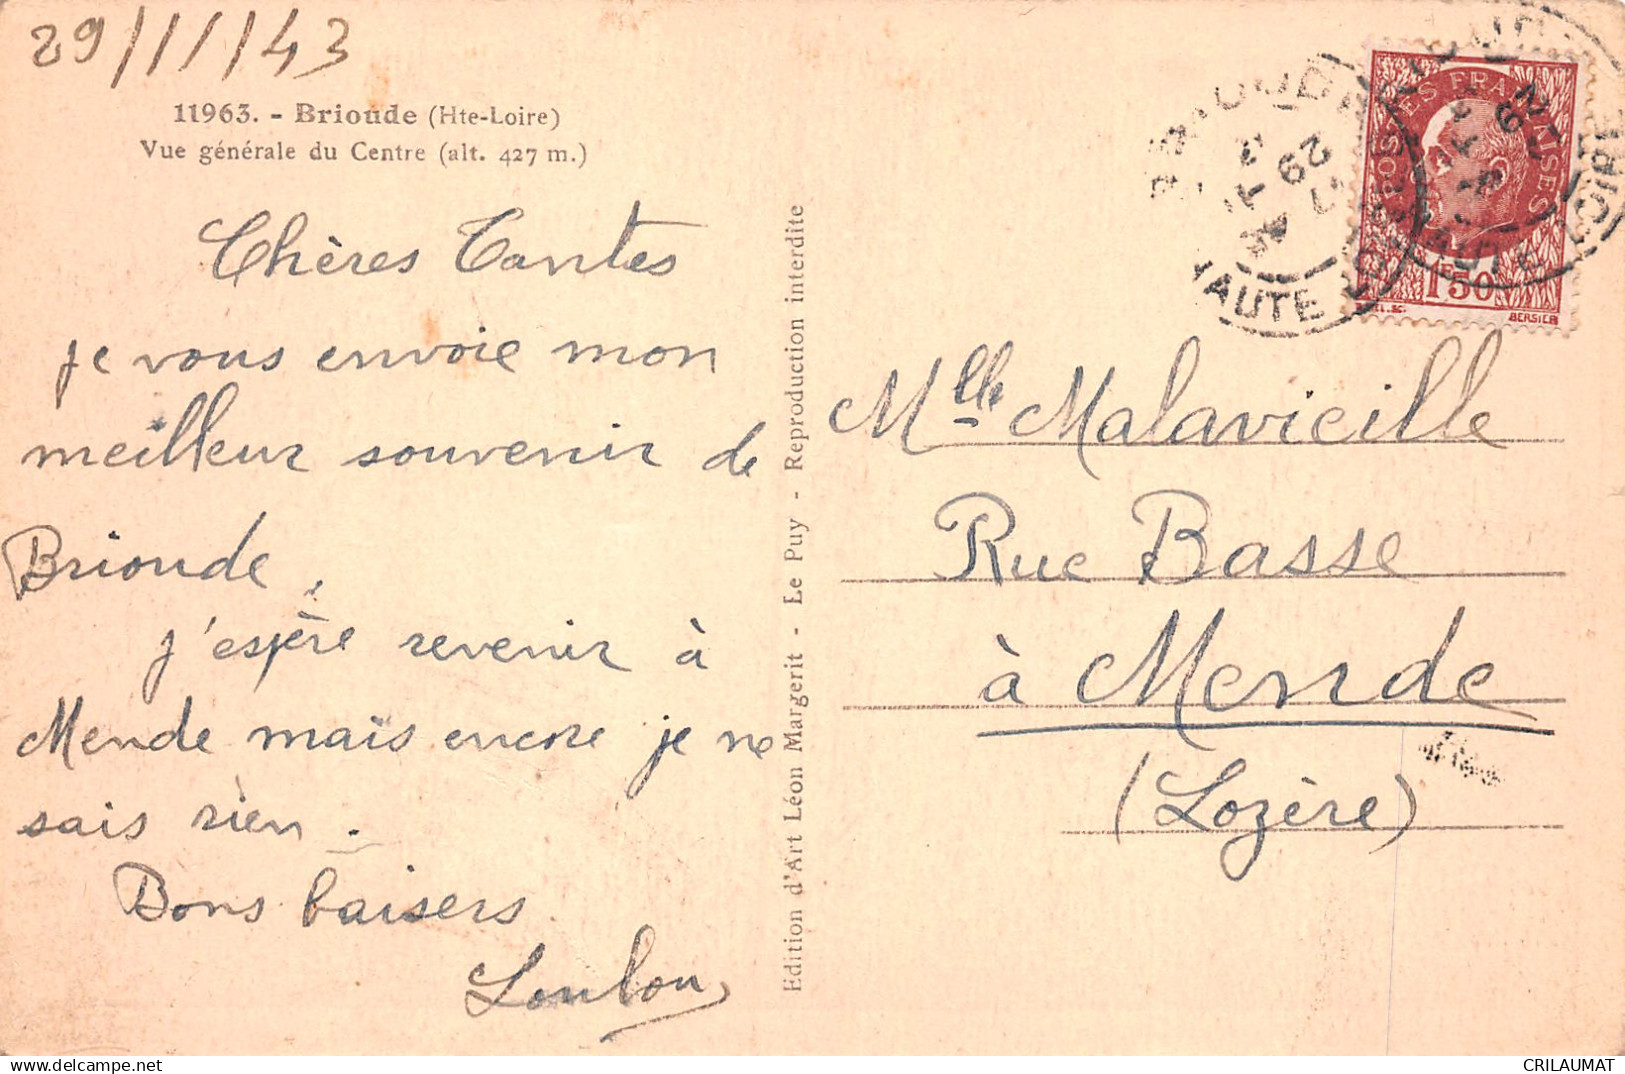 29/1/43
11963. - Brioude (Hte-Loire)
Vue générale du Centre (alt. 427 m.)
Chères Tantes
je vous envoie mon
meilleur souvenir de
Brioude,
j'espère revenir à
Mende mais encore je ne
sais rien.
Bons baisers
Loulou
Edition d'Art Léon Margerit - Le Puy - Reproduction interdite
POSTES FRANÇAISES
1F50
BERSIER
HAUTE
Mlle Malavieille
Rue Basse
à Mende
(Lozère)
CRILAUMAT